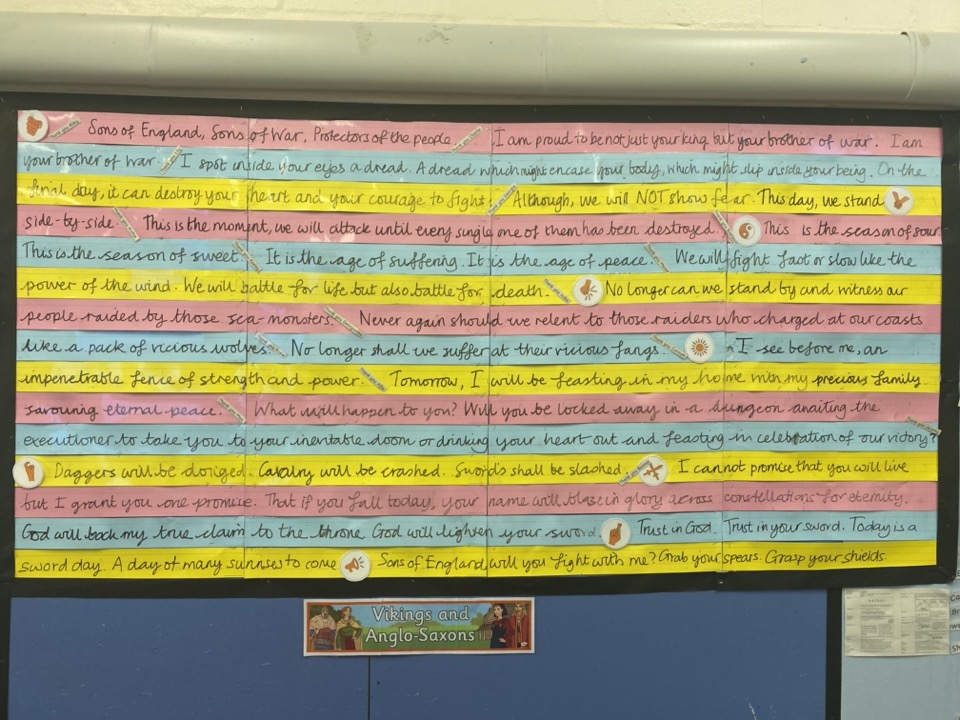 Sons of England, Sons of War, Protectors of the people. I am proud to be not just your king but your brother of war. I am
your brother of war. I spot inside your eyes a dread. A dread which might encase your body, which might slip inside your being. On the
final day, it can destroy your heart and your courage to fight. Although, we will NOT show fear. This day, we stand
side-by-side. This is the moment, we will attack until every single one of them has been destroyed. This is the season of sour
This is the season of sweet. It is the age of suffering. It is the age of peace. We will fight fast or slow like the
power of the wind. We will battle for life but also battle for death. No longer can we stand by and witness our
people raided by those sea-monsters. Never again should we relent to those raiders who charged at our coasts
like a pack of vicious wolves. No longer shall we suffer at their vicious fangs. I see before me, an
impenetrable fence of strength and power. Tomorrow, I will be feasting in my home with my precious family
savouring eternal peace. What will happen to you? Will you be locked away in a dungeon awaiting the
executioner to take you to your inevitable doom or drinking your heart out and feasting in celebration of our victory?
Daggers will be donged. Cavalry will be crashed. Swords shall be slashed. I cannot promise that you will live
but I grant you one promise. That if you fall today, your name will blaze in glory across constellations for eternity.
God will back my true claim to the throne God will lighten your sword. Trust in God. Trust in your sword. Today is a
sword day. A day of many sunrises to come Sons of England, will you fight with me? Grab your spears. Grasp your shields.
Vikings and
Anglo-Saxons